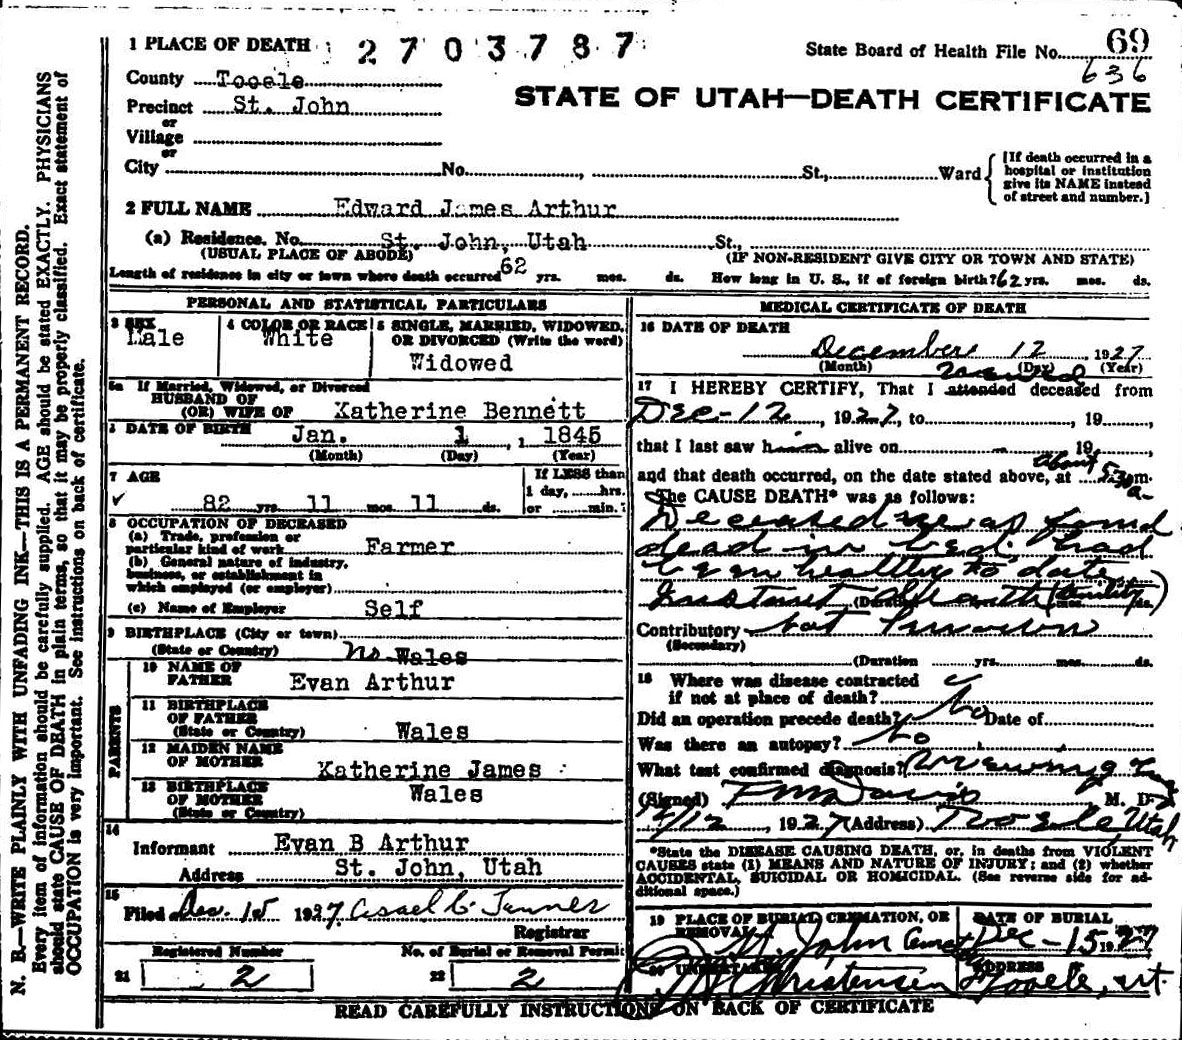 1 PLACE OF DEATH
2703787
State Board of Health File No. 69
636
County Tooele
STATE OF UTAH—DEATH CERTIFICATE
Precinct St. John
or
Village
or
City No. , St., Ward
[If death occurred in a hospital or institution give its NAME instead of street and number.]
2 FULL NAME Edward James Arthur
(a) Residence. No. St. John, Utah St.,
(USUAL PLACE OF ABODE) (IF NON-RESIDENT GIVE CITY OR TOWN AND STATE)
Length of residence in city or town where death occurred 62 yrs. mos. ds. How long in U. S., if of foreign birth? 62 yrs. mos. ds.
PERSONAL AND STATISTICAL PARTICULARS
3 SEX
Male
4 COLOR OR RACE
White
5 SINGLE, MARRIED, WIDOWED, OR DIVORCED (Write the word)
Widowed
5a If Married, Widowed, or Divorced
HUSBAND OF
(OR) WIFE OF Katherine Bennett
DATE OF BIRTH Jan. 1, 1845
(Month) (Day) (Year)
7 AGE
82 yrs. 11 mos. 11 ds.
If LESS than
1 day, hrs.
or min.
8 OCCUPATION OF DECEASED
(a) Trade, profession or
particular kind of work Farmer
(b) General nature of industry,
business, or establishment in
which employed (or employer)
(c) Name of Employer Self
9 BIRTHPLACE (City or town)
(State or Country) no Wales
PARENTS
10 NAME OF
FATHER Evan Arthur
11 BIRTHPLACE
OF FATHER
(State or Country) Wales
12 MAIDEN NAME
OF MOTHER Katherine James
13 BIRTHPLACE
OF MOTHER Wales
(State or Country)
14
Informant Evan B Arthur
Address St. John, Utah
15
Filed Dec. 15 1927 Asael C. Tanner
Registrar
Registered Number No. of Burial or Removal Permit
21 2 22 2
MEDICAL CERTIFICATE OF DEATH
16 DATE OF DEATH
December 12, 1927
(Month) (Day) (Year)
viewed
17 I HEREBY CERTIFY, That I attended deceased from
Dec-12, 1927, to , 19 ,
that I last saw him alive on 19
about
and that death occurred, on the date stated above, at 5:30 m.
a-
The CAUSE DEATH* was as follows:
Deceased was found
dead in bed, had
been healthy to date
Instant Death (Senility)
(Duration mos. ds.
Contributory not known
(Secondary)
(Duration yrs. mos. ds.
18 Where was disease contracted
if not at place of death?
Did an operation precede death? No Date of
Was there an autopsy? No
What test confirmed diagnosis? Viewing
(Signed) T M Davis M. D.
12/12, 1927 (Address) Tooele, Utah
*State the DISEASE CAUSING DEATH, or, in deaths from VIOLENT
CAUSES state (1) MEANS AND NATURE OF INJURY; and (2) whether
ACCIDENTAL, SUICIDAL OR HOMICIDAL. (See reverse side for ad-
ditional space.)
19 PLACE OF BURIAL, CREMATION, OR
REMOVAL
St. John Cemet
DATE OF BURIAL
Dec-15 1927
20 UNDERTAKER
Christensen
ADDRESS
Tooele, Ut.
READ CAREFULLY INSTRUCTIONS ON BACK OF CERTIFICATE
N. B.—WRITE PLAINLY WITH UNFADING INK—THIS IS A PERMANENT RECORD.
Every item of information should be carefully supplied. AGE should be stated EXACTLY. PHYSICIANS
should state CAUSE OF DEATH in plain terms, so that it may be properly classified. Exact statement of
OCCUPATION is very important. See instructions on back of certificate.